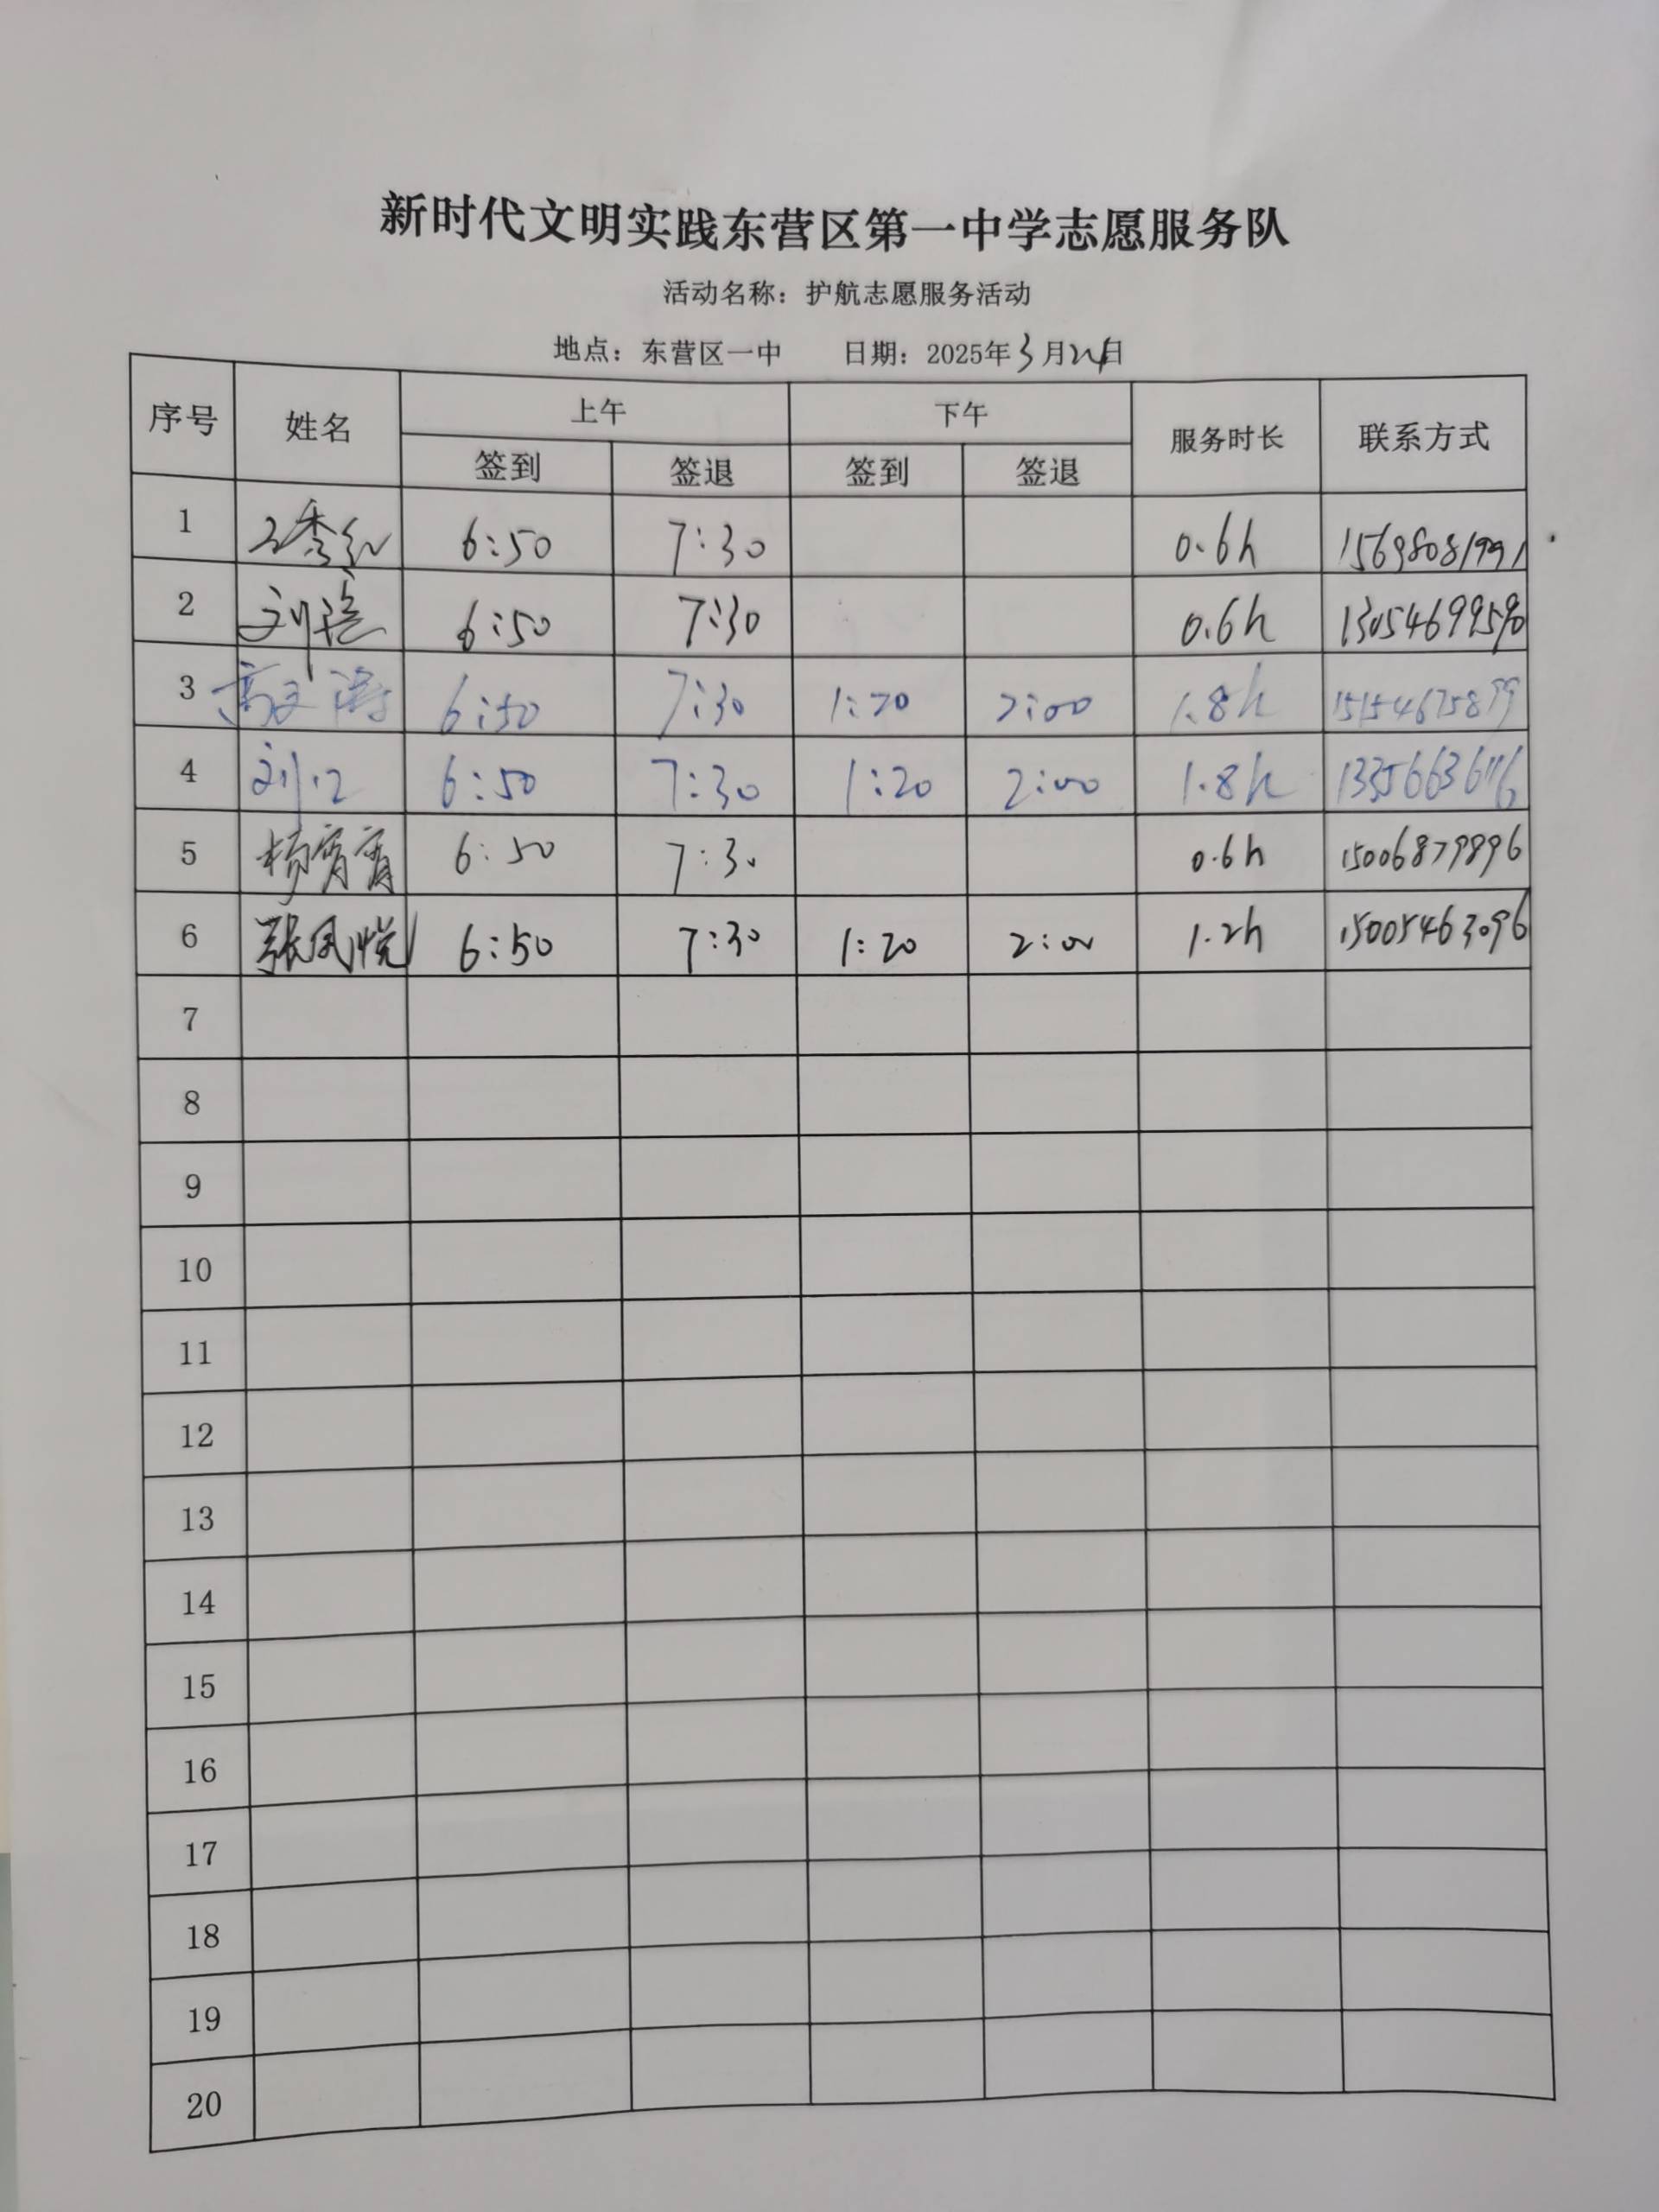 新时代文明实践东营区第一中学志愿服务队
活动名称：护航志愿服务活动
地点：东营区一中 日期：2025年3月日
序号 姓名 上午 下午 服务时长 联系方式
签到 签退 签到 签退
1 6:50 7:30 0.6h 15698081991
2 刘 6:50 7:30 0.6h 13054699590
3 高文涛 6:50 7:30 1:20 2:00 1.8h 15154675899
4 刘 6:50 7:30 1:20 2:00 1.8h
5 杨宵宵 6:50 7:30 0.6h 15006879896
6 张凤悦 6:50 7:30 1:20 2:00 1.2h 15005463096
7
8
9
10
11
12
13
14
15
16
17
18
19
20